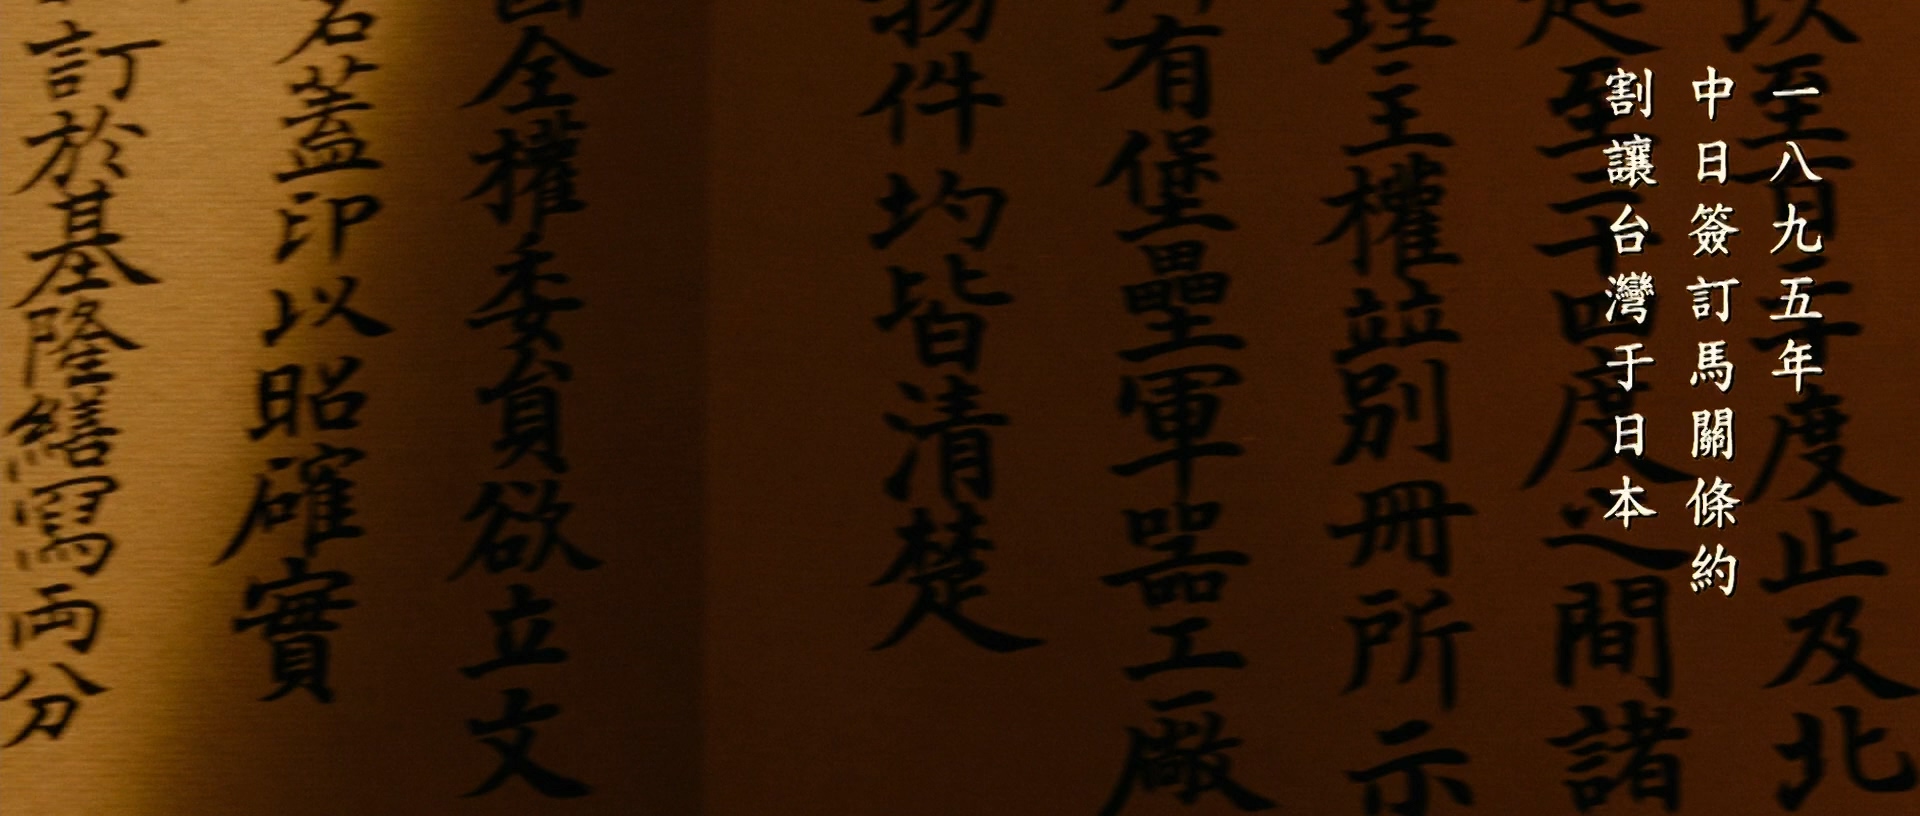 一八九五年
中日簽訂馬關條約
割讓台灣于日本
以至百二十度止及北
起至二十四度之間諸
理主權並別冊所示
所有堡壘軍器工廠
物件均皆清楚
全權委員欲立文
名蓋印以昭確實
訂於基隆繕寫両分